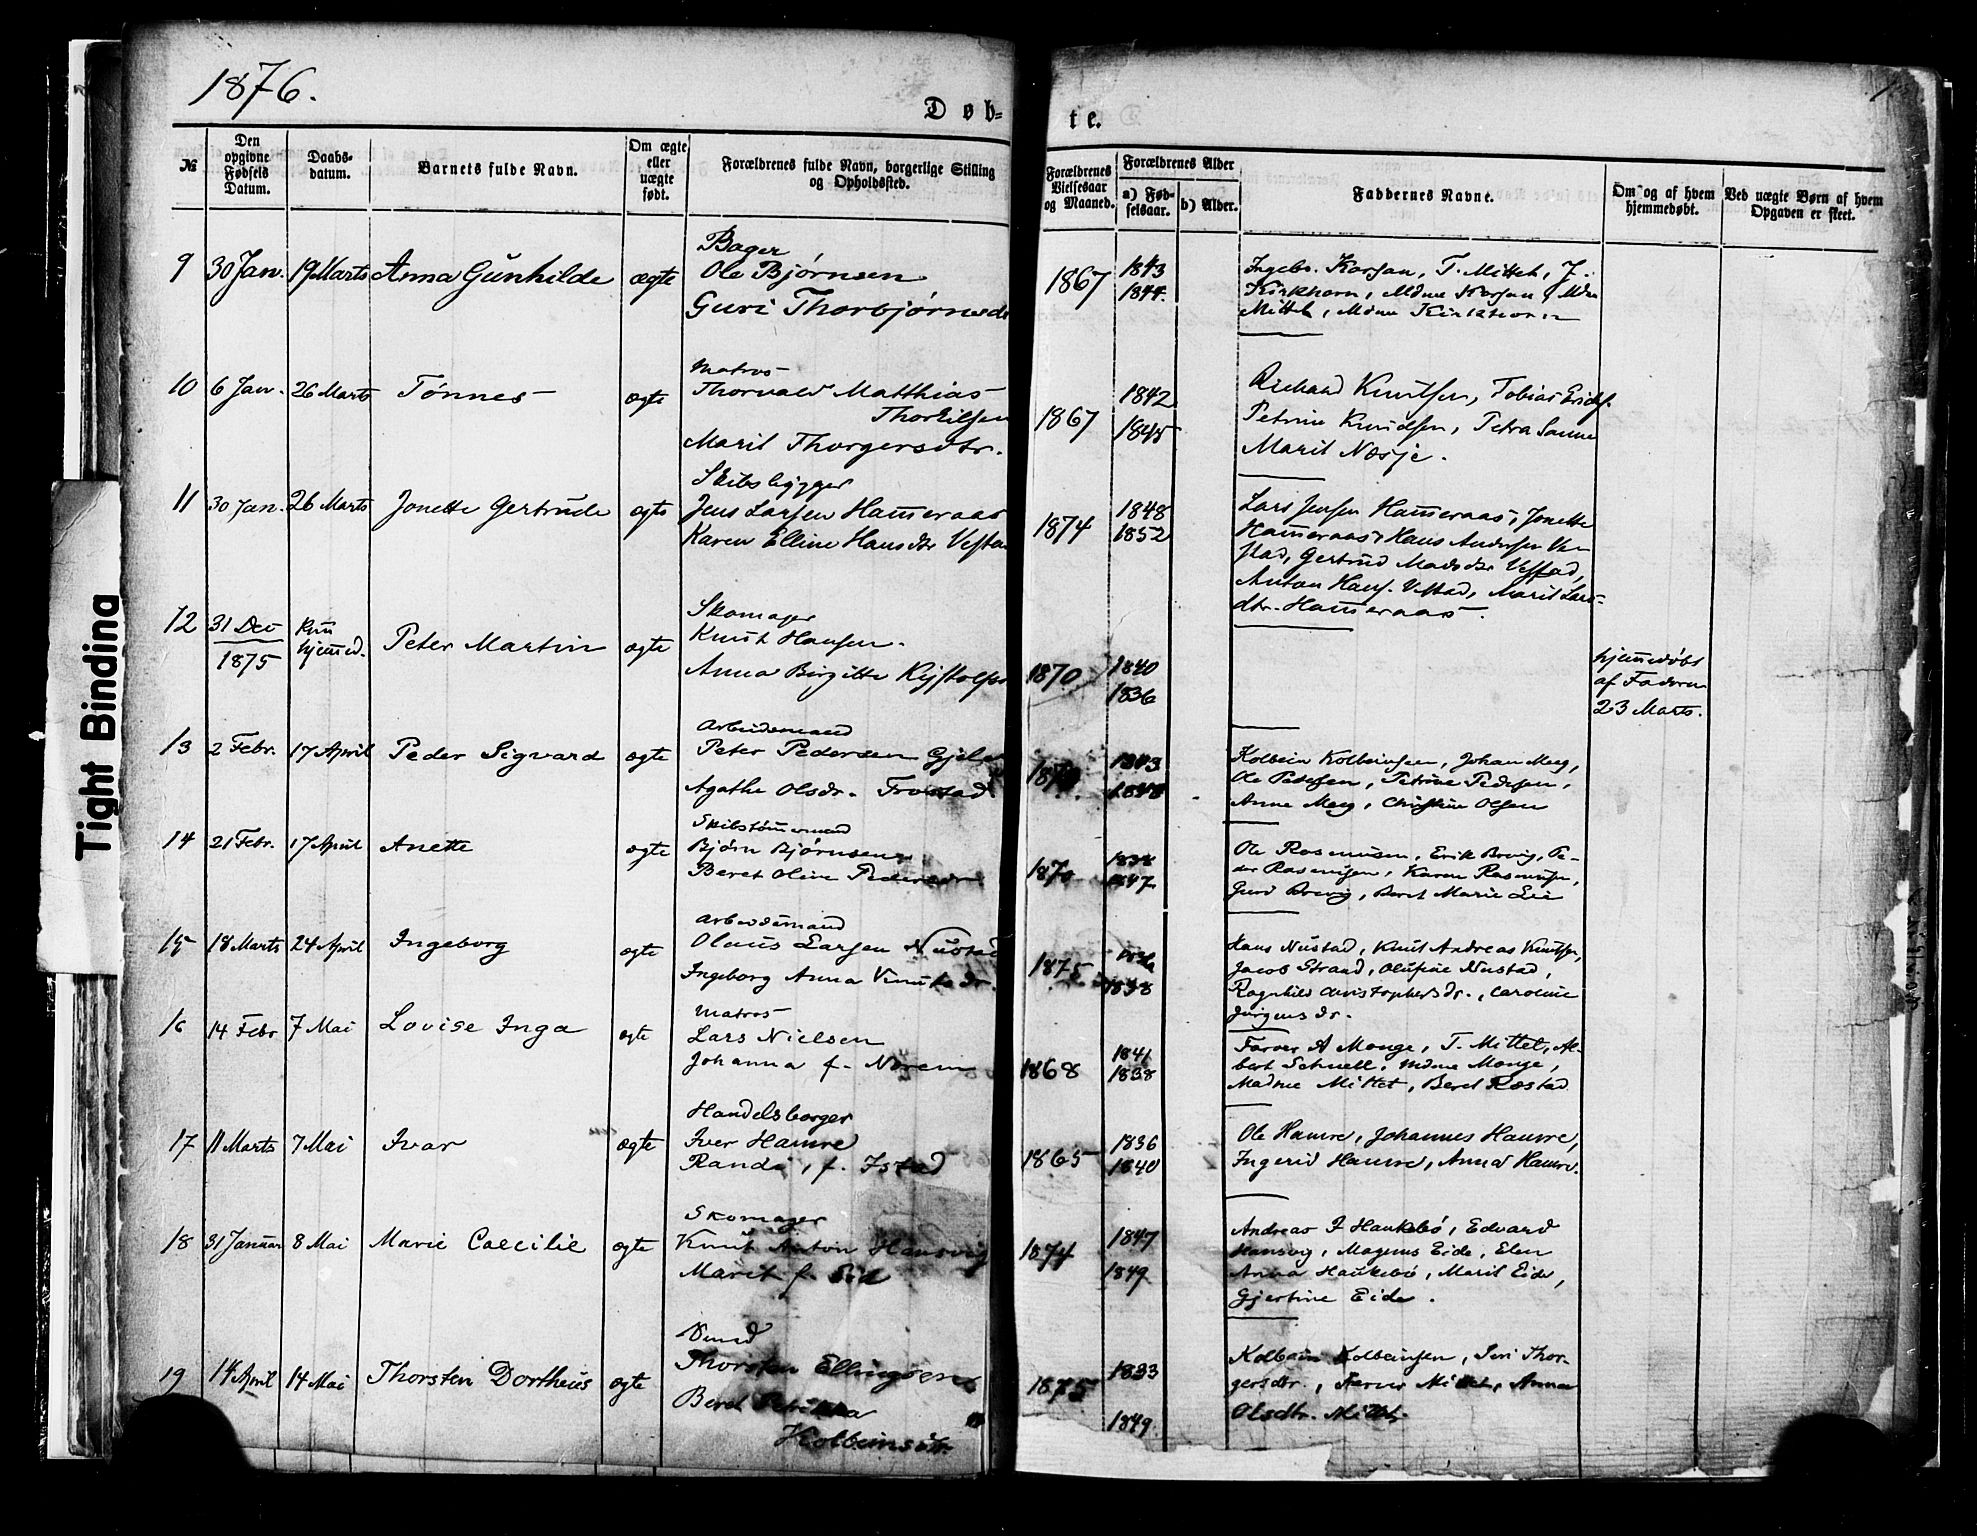 1876.
Døb-
te.
№
Den opgivne Fødsels Datum.
Daabs-datum.
Barnets fulde Navn.
Om ægte eller uægte født.
Forældrenes fulde Navn, borgerlige Stilling og Opholdssted.
Forældrenes Vielsesaar og Maaned.
Forældrenes Alder
a) Fødselsaar.
b) Alder.
Faddernes Navne.
Om og af hvem hjemmedøbt.
Ved uægte Børn af hvem Opgaven er skeet.
Bager
9 30 Jan. 19 Marts Anna Gunhilde ægte Ole Bjørnsen 1867 1843
Guri Thorbjørnsdr 1844.
T. Mittet, J.
Kirkhorn, Mdme
Mittet, Mdme
Matros
10 6 Jan. 26 Marts Tønnes ægte Thorvald Matthias 1867 1842
Thorkilsen
Marit Thorgersdtr. 1845
Richard Knutsen, Tobias
Petrine Knudsen, Petra
Marit Næsje.
Skibsbygger
11 30 Jan. 26 Marts Jonette Gertrude ægte Jens Larsen Hameraas 1874 1848
Karen Elline Hansdtr Vestad 1852
Lars Jensen Hameraas, Jonette
Hameraas, Hans Andersen Ve-
stad, Gertrud Madsdtr Vestad,
Anton Hans. Vestad, Marit Lars-
dtr. Hameraas.
Skomager
12 31 Dec 1875 Kun hjemmed. Peter Martin ægte Knut Hansen. 1870 1840
Anna Birgitte 1836
hjemmedøbt
af Faderen
23 Marts.
Arbeidsmand
13 2 Febr. 17 April Peder Sigvard ægte Peter Pedersen 1843
Agathe Olsdr.
Kolbein Kolbeinsen, Johan Meeg,
Ole Petersen, Petrine Pedersen,
Anne Meeg, Christine Olsen
Skibstømmermand
14 21 Febr. 17 April Anette ægte Bjørn Bjørnsen 1870 1838
Beret Oline Pedersdr 1847
Ole Rasmussen, Erik Brevig, Pe-
der Rasmussen, Karen Rasmuss.,
Guri Brevig, Beret Marie Lie
Arbeidsmand
15 18 Marts 24 April Ingeborg ægte Olaus Larsen Nustad 1875
Ingeborg Anna Knutsdr. 1838
Hans Nustad, Knut Andreas Knutsen,
Jacob Strand, Olufine Nustad,
Ragnhild Christophersdr., Caroline
Jørgensdr.
Matros
16 14 Febr 7 Mai Lovise Inga ægte Lars Nielsen 1868 1841
Johanna f. Norem 1838
Farver A Monge, T. Mittet, Al-
bert Schnell, Mdme Monge,
Madme Mittet, Beret Røstad
Handelsborger
17 11 Marts 7 Mai Ivar ægte Iver Hamre 1865 1836
Randi, f. Istad 1840
Ole Hamre, Johannes Hamre,
Ingerid Hamre, Anna Hamre.
Skomager
18 31 Januar 8 Mai Marie Caecilie ægte Knut Anton Hansvig 1874 1847
Marit f. Eid 1849
Andreas J Haukebø, Edvard
Hansvig, Magnus Eide, Elen
Anna Haukebø, Marit Eide,
Gjertine Eide.
19 14 April 14 Mai Thorsten Dortheus ægte Thorsten Ellingsen 1875 1833
Beret Petrikka 1849.
Kolbeinsdtr.
Kolbein Kolbeinsen, Siri Thor-
gersdtr., Farver Mittet, Anna
Olsdtr. Mittet.
Tight Binding